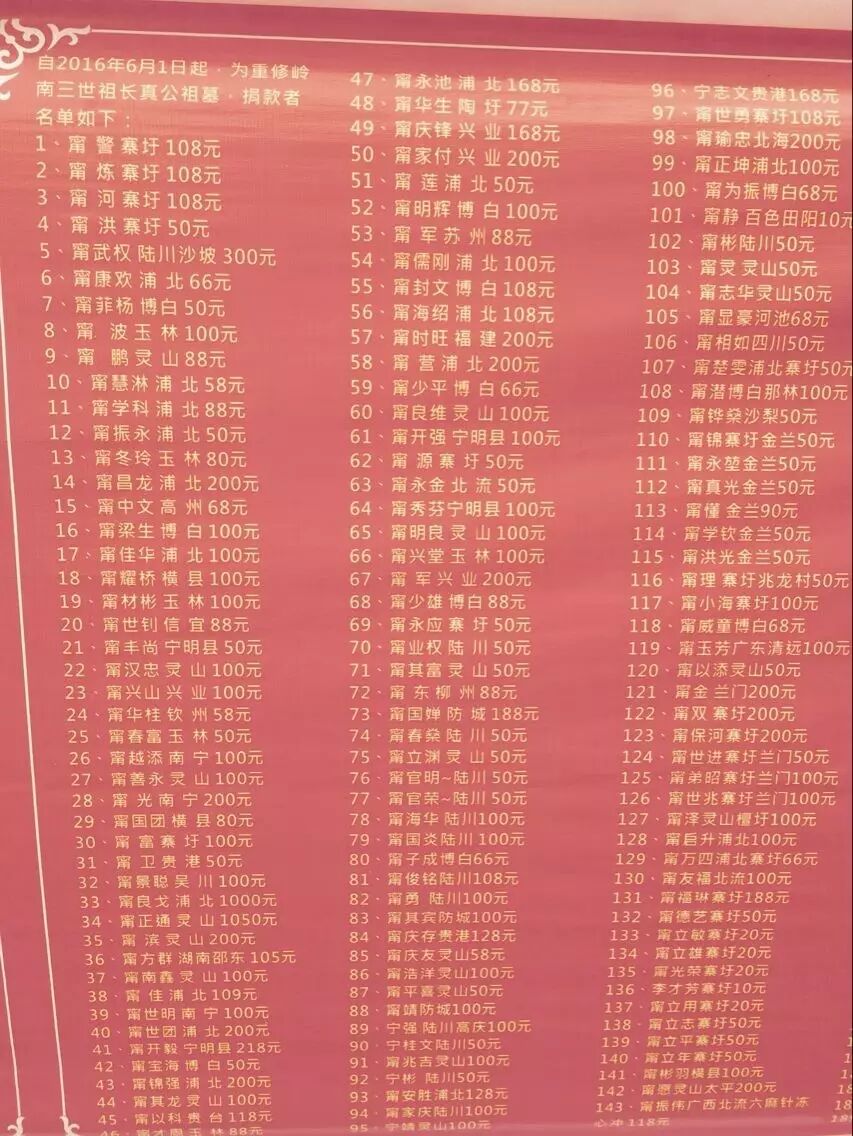 自2016年6月1日起，为重修岭
南三世祖长真公祖墓，捐款者
名单如下：
1、甯 警 寨圩 108元
2、甯 炼 寨圩 108元
3、甯 河 寨圩 108元
4、甯 洪 寨圩 50元
5、甯武权 陆川沙坡 300元
6、甯康欢 浦 北 66元
7、甯菲杨 博白 50元
8、甯 波 玉 林 100元
9、甯 鹏 灵 山 88元
10、甯慧淋 浦 北 58元
11、甯学科 浦 北 88元
12、甯振永 浦 北 50元
13、甯冬玲 玉 林 80元
14、甯昌龙 浦 北 200元
15、甯中文 高 州 68元
16、甯梁生 博 白 100元
17、甯佳华 浦 北 100元
18、甯耀桥 横 县 100元
19、甯材彬 玉 林 100元
20、甯世钊 信 宜 88元
21、甯丰尚 宁明县 50元
22、甯汉忠 灵 山 100元
23、甯兴山 兴 业 100元
24、甯华桂 钦 州 58元
25、甯春富 玉 林 50元
26、甯越添 南 宁 100元
27、甯善永 灵 山 100元
28、甯 光 南 宁 200元
29、甯国团 横 县 80元
30、甯 富 寨 圩 100元
31、甯 卫 贵 港 50元
32、甯景聪 吴 川 100元
33、甯良戈 浦 北 1000元
34、甯正通 灵 山 1050元
35、甯 滨 灵 山 200元
36、甯方群 湖南邵东 105元
37、甯南鑫 灵 山 100元
38、甯 佳 浦 北 109元
39、甯世明 南 宁 100元
40、甯世团 浦 北 200元
41、甯开毅 宁明县 218元
42、甯宝海 博 白 50元
43、甯锦强 浦 北 200元
44、甯其龙 灵 山 100元
45、甯以科 贵 台 118元
46、甯才 玉 林 88元
47、甯永池 浦 北 168元
48、甯华生 陶 圩 77元
49、甯庆锋 兴 业 168元
50、甯家付 兴 业 200元
51、甯 莲 浦 北 50元
52、甯明辉 博 白 100元
53、甯 军 苏 州 88元
54、甯儒刚 浦 北 100元
55、甯封文 博 白 108元
56、甯海绍 浦 北 108元
57、甯时旺 福 建 200元
58、甯 营 浦 北 200元
59、甯少平 博 白 66元
60、甯良维 灵 山 100元
61、甯开强 宁明县 100元
62、甯 源 寨 圩 50元
63、甯永金 北 流 50元
64、甯秀芬 宁明县 100元
65、甯明良 灵 山 100元
66、甯兴堂 玉 林 100元
67、甯 军 兴 业 200元
68、甯少雄 博白 88元
69、甯永应 寨 圩 50元
70、甯业权 陆 川 50元
71、甯其富 灵 山 50元
72、甯 东 柳 州 88元
73、甯国婵 防 城 188元
74、甯春燊 陆 川 50元
75、甯立渊 灵 山 50元
76、甯官明~陆川 50元
77、甯官荣~陆川 50元
78、甯海华 陆川100元
79、甯国炎陆川 100元
80、甯子成博白66元
81、甯俊铭陆川108元
82、甯勇 陆川100元
83、甯其宾防城100元
84、甯庆存贵港128元
85、甯庆友灵山58元
86、甯浩洋灵山100元
87、甯平喜灵山50元
88、甯靖防城100元
89、宁强 陆川高庆100元
90、宁桂文陆川50元
91、甯兆吉灵山100元
92、宁彬 陆川50元
93、甯安胜浦北128元
94、甯家庆陆川100元
95、宁靖灵山100元
96、宁志文贵港168元
97、甯世勇寨圩108元
98、甯瑜忠北海200元
99、甯正坤浦北100元
100、甯为振博白68元
101、甯静 百色田阳10元
102、甯彬陆川50元
103、甯灵 灵山50元
104、甯志华灵山50元
105、甯显豪河池68元
106、甯相如四川50元
107、甯楚雯浦北寨圩50元
108、甯潜博白那林100元
109、甯铧燊沙梨50元
110、甯锦寨圩金兰50元
111、甯永堃金兰50元
112、甯真光金兰50元
113、甯懂 金兰90元
114、甯学钦金兰50元
115、甯洪光金兰50元
116、甯理 寨圩兆龙村50元
117、甯小海寨圩100元
118、甯威童博白68元
119、甯玉芳广东清远100元
120、甯以添灵山50元
121、甯金 兰门200元
122、甯双 寨圩200元
123、甯保河寨圩200元
124、甯世进寨圩兰门50元
125、甯弟昭寨圩兰门100元
126、甯世兆寨圩兰门100元
127、甯泽灵山檀圩100元
128、甯启升浦北100元
129、甯万四浦北寨圩66元
130、甯友福北流100元
131、甯福琳寨圩188元
132、甯德艺寨圩50元
133、甯立敏寨圩20元
134、甯立雄寨圩20元
135、甯光荣寨圩20元
136、李才芳寨圩10元
137、甯立用寨圩20元
138、甯立志寨圩50元
139、甯立平寨圩50元
140、甯立年寨圩50元
141、甯彬羽横县100元
142、甯愿灵山太平200元
143、甯振伟广西北流六麻针冻
心冲118元